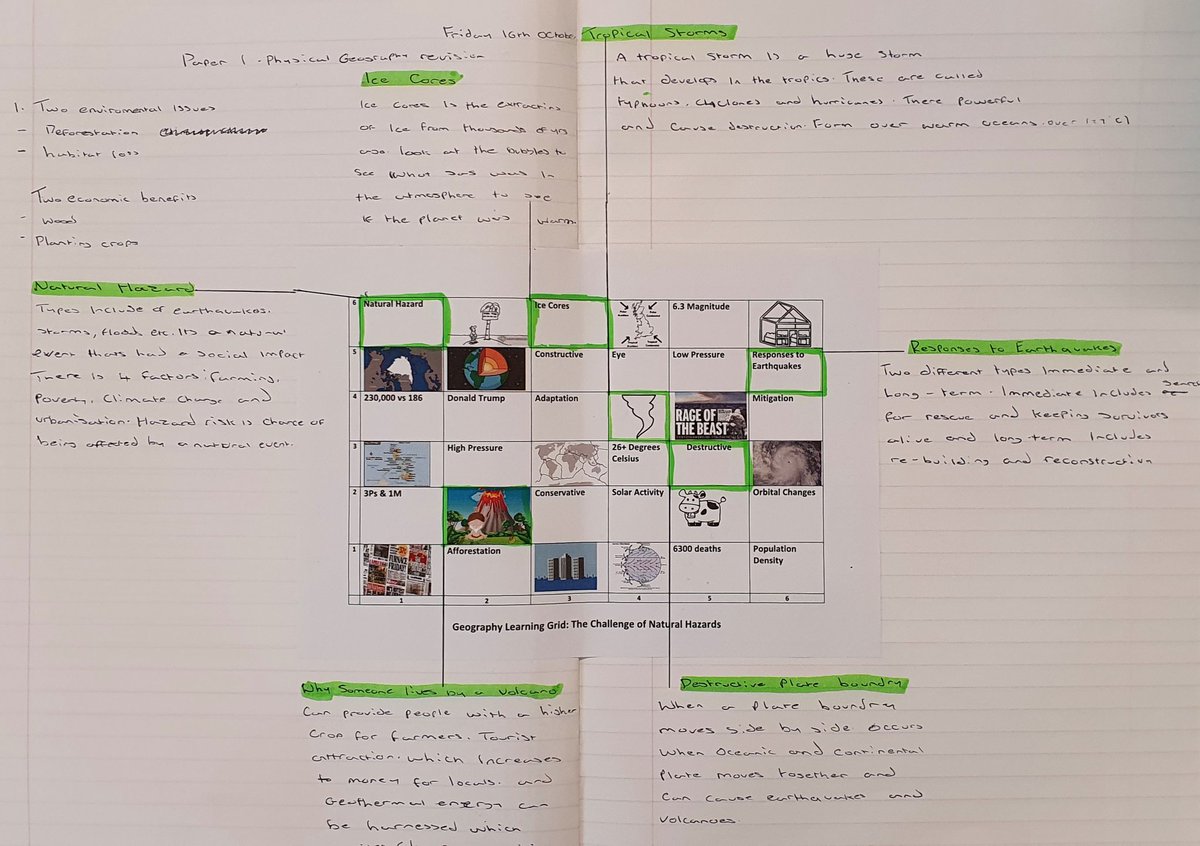 Friday 16th October
Paper 1 - Physical Geography revision
1. Two enviromental issues
- Deforestation
- habitat loss
Two economic benefits
- Wood
- Planting crops
Ice Cores
Ice cores is the extraction
of Ice from thousands of yrs
ago. look at the bubbles to
see what gas was in
the atmosphere to see
if the planet was warm.
Tropical Storms
A tropical storm is a huge storm
that develops in the tropics. These are called
typhoons, cyclones and hurricanes. There powerful
and cause destruction. Form over warm oceans. over (27°C)
Natural Hazard
Types include of earthquakes,
storms, floods etc. Its a natural
event thats had a social impact
There is 4 factors: farming,
Poverty, Climate Change and
urbanisation. Hazard risk is chance of
being affected by a natural event.
Responses to Earthquakes
Two different types immediate and
Long-term. Immediate includes search
for rescue and keeping survivors
alive and long term includes
re-building and reconstruction
6 Natural Hazard Ice Cores 6.3 Magnitude
5 Constructive Eye Low Pressure Responses to
Earthquakes
4 230,000 vs 186 Donald Trump Adaptation RAGE OF THE BEAST Mitigation
3 High Pressure 26+ Degrees
Celsius Destructive
2 3Ps & 1M Conservative Solar Activity Orbital Changes
1 Afforestation 6300 deaths Population
Density
1 2 3 4 5 6
Geography Learning Grid: The Challenge of Natural Hazards
Why Someone lives by a Volcano
Can provide people with a higher
crop for farmers. Tourist
attraction. which increases
to money for locals. and
Geothermal energy can
be harnessed which
Destructive Plate boundry
When a plate boundry
moves side by side occurs
when oceanic and continental
plate moves together and
can cause earthquakes and
volcanoes.